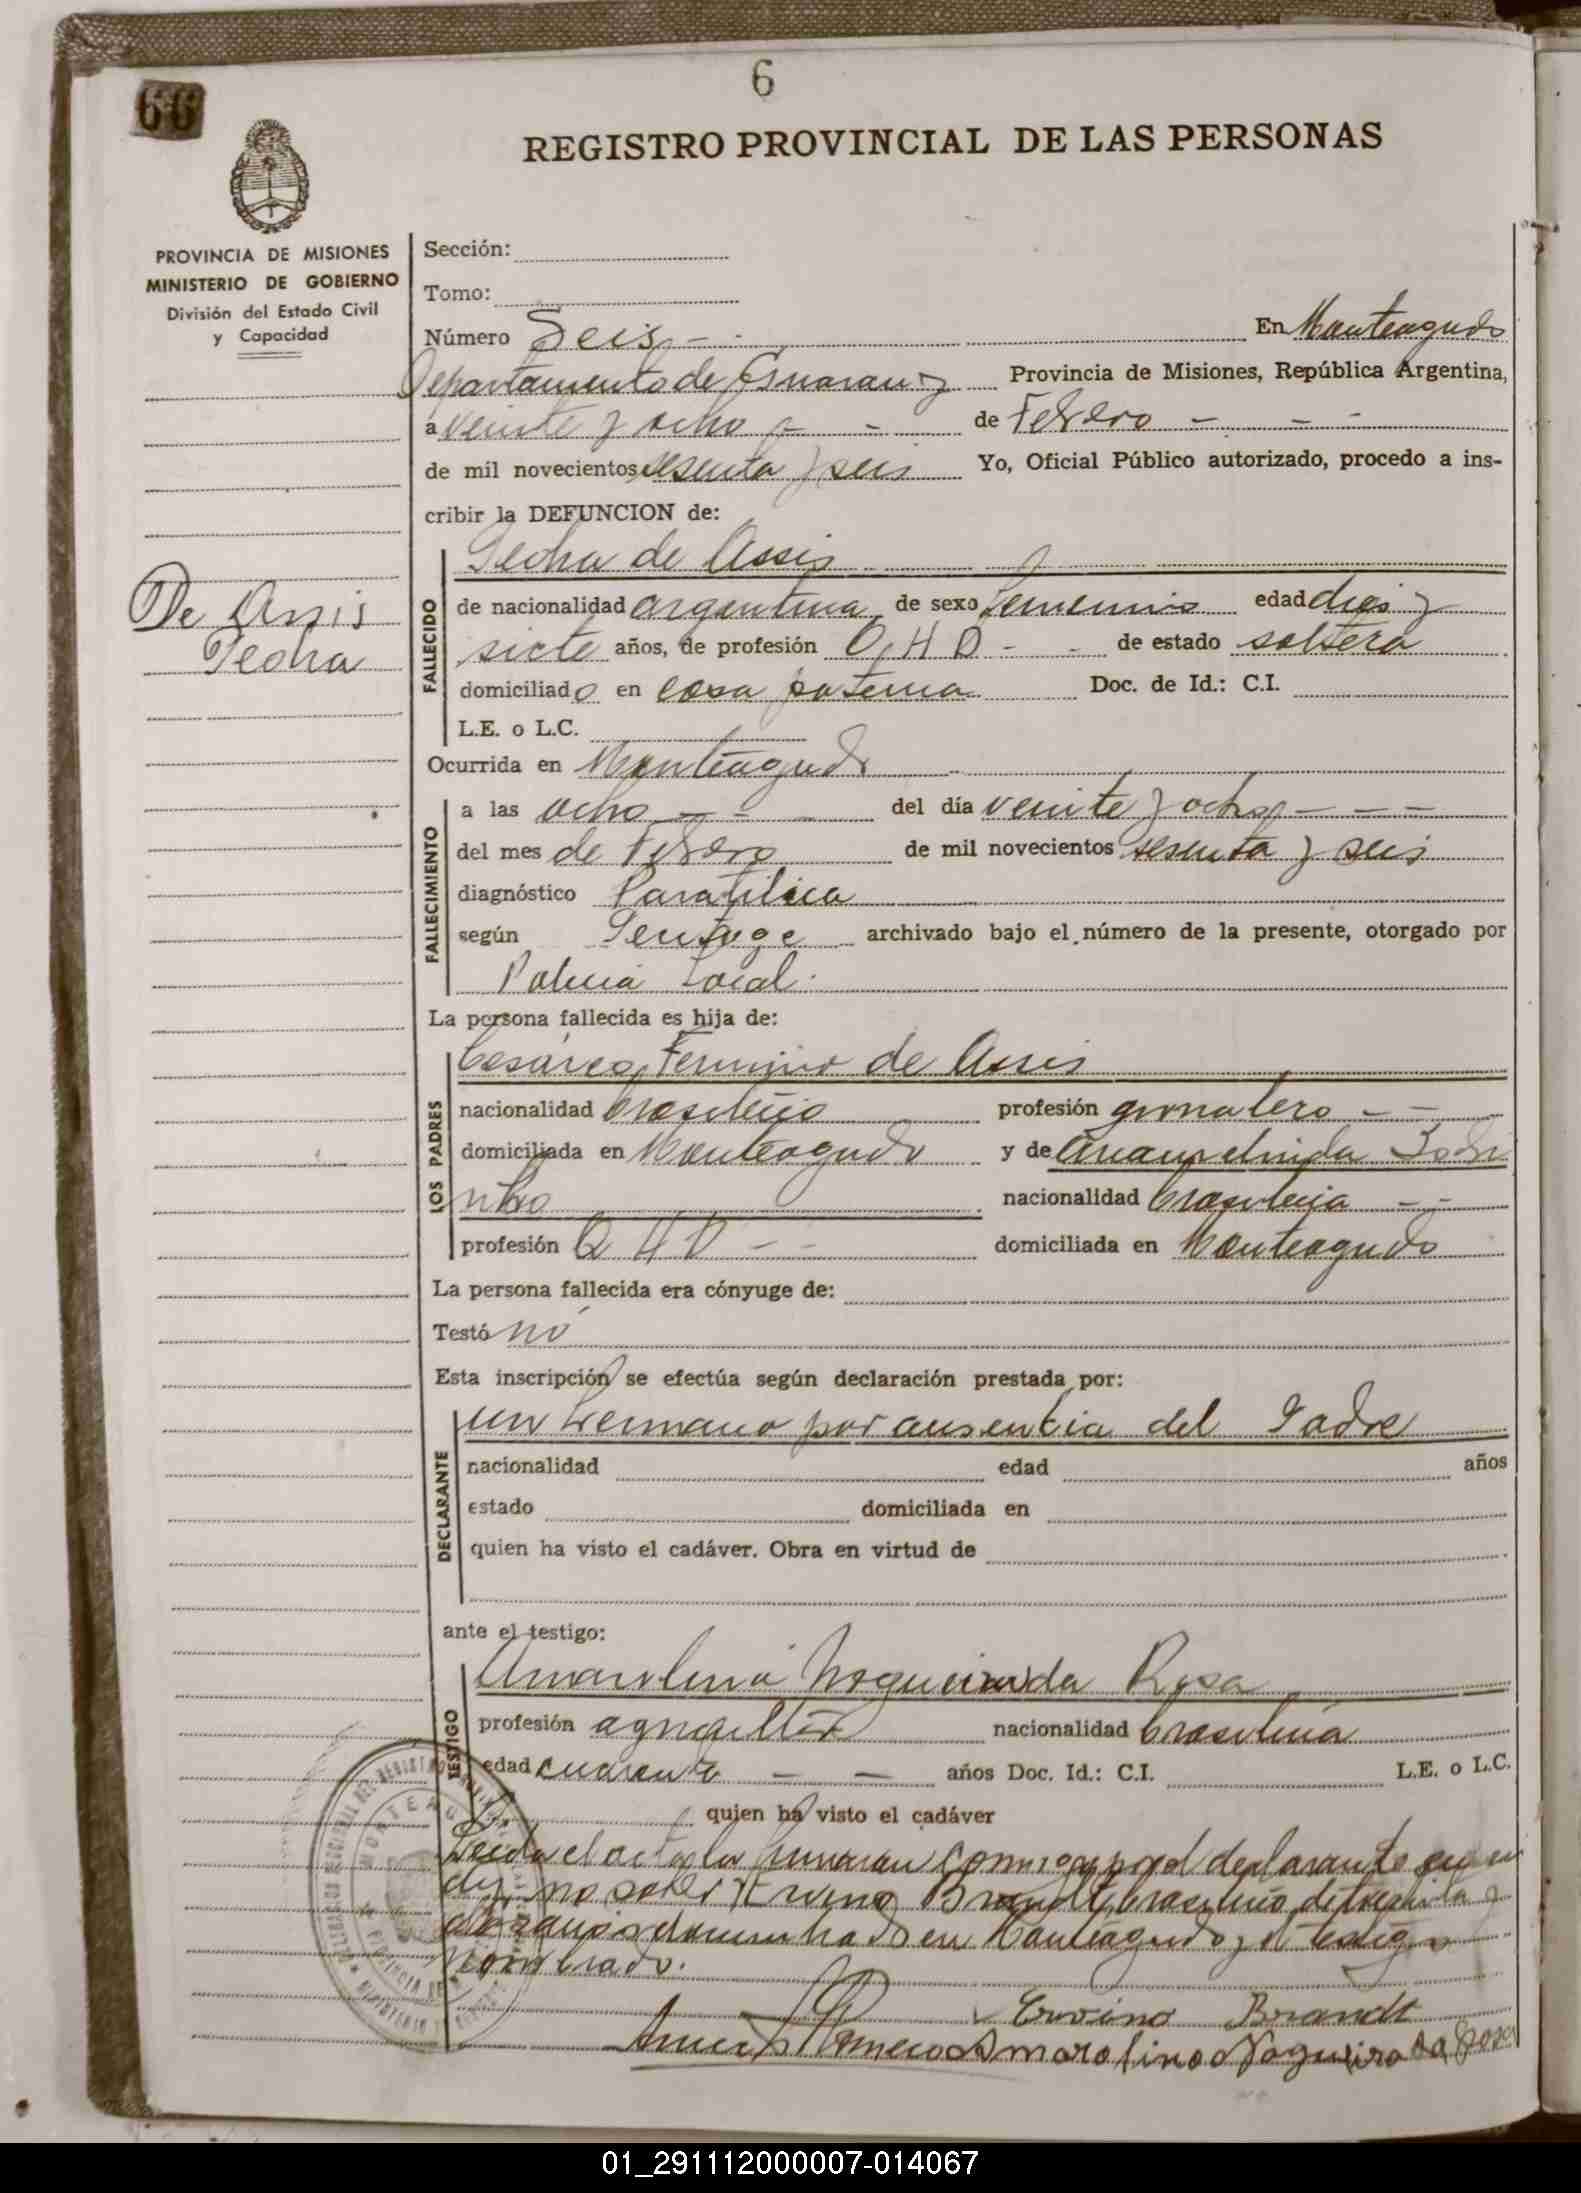 6
66
REGISTRO PROVINCIAL DE LAS PERSONAS
PROVINCIA DE MISIONES
MINISTERIO DE GOBIERNO
División del Estado Civil
y Capacidad
Sección:
Tomo:
Número Seis - En Monteagudo
Departamento de Guarani Provincia de Misiones, República Argentina,
a veinte y ocho - - de Febrero - - -
de mil novecientos sesenta y seis Yo, Oficial Público autorizado, procedo a ins-
cribir la DEFUNCION de:
de Assis
De Assis
FALLECIDO
de nacionalidad argentina de sexo femenino edad dies y
siete años, de profesión Q H D - - de estado soltera
domiciliado en casa paterna Doc. de Id.: C.I.
L.E. o L.C.
Ocurrida en Monteagudo
FALLECIMIENTO
a las ocho - - - del día veinte y ocho - - -
del mes de Febrero de mil novecientos sesenta y seis
diagnóstico
según archivado bajo el número de la presente, otorgado por
Policia Local.
La persona fallecida es hija de:
LOS PADRES
Cesareo Fermino de Assis
nacionalidad brasileño profesión jornalero - -
domiciliada en Monteagudo y de
nacionalidad brasileña - -
profesión Q H D - - domiciliada en Monteagudo
La persona fallecida era cónyuge de:
Testó no
Esta inscripción se efectúa según declaración prestada por:
DECLARANTE
un hermano por ausencia del Padre
nacionalidad edad años
estado domiciliada en
quien ha visto el cadáver. Obra en virtud de
ante el testigo:
TESTIGO
Amarolino Nogueira da Rosa
profesión agricultor nacionalidad brasileña
edad cuarenta - - años Doc. Id.: C.I. L.E. o L.C.
quien ha visto el cadáver
Leida el acta la firman conmigo por el declarante
no saber Ervino Brandt brasileño de treinta y
años domiciliado en Monteagudo y el testigo
nombrado.
Ervino Brandt
Amarolino Nogueira da Rosa
01_291112000007-014067